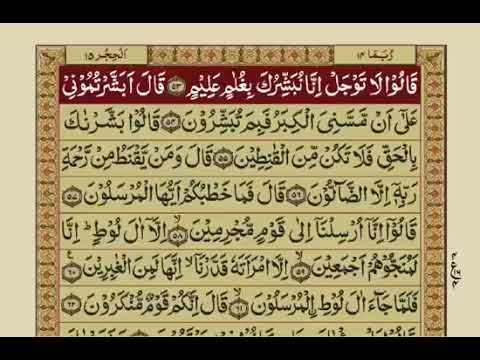 رُبَمَا ١٤ اَلْحِجْر ١٥
قَالُوْا لَا تَوْجَلْ اِنَّا نُبَشِّرُكَ بِغُلٰمٍ عَلِيْمٍ ﴿۵۳﴾ قَالَ اَبَشَّرْتُمُوْنِيْ
عَلٰۤى اَنْ مَّسَّنِيَ الْكِبَرُ فَبِمَ تُبَشِّرُوْنَ ﴿۵۴﴾ قَالُوْا بَشَّرْنٰكَ
بِالْحَقِّ فَلَا تَكُنْ مِّنَ الْقٰنِطِيْنَ ﴿۵۵﴾ قَالَ وَمَنْ يَّقْنَطُ مِنْ رَّحْمَةِ
رَبِّهٖۤ اِلَّا الضَّآلُّوْنَ ﴿۵۶﴾ قَالَ فَمَا خَطْبُكُمْ اَيُّهَا الْمُرْسَلُوْنَ ﴿۵۷﴾
قَالُوْۤا اِنَّاۤ اُرْسِلْنَاۤ اِلٰى قَوْمٍ مُّجْرِمِيْنَ ﴿۵۸﴾ اِلَّاۤ اٰلَ لُوْطٍ ؕ اِنَّا
لَمُنَجُّوْهُمْ اَجْمَعِيْنَ ﴿۵۹﴾ اِلَّا امْرَاَتَهٗ قَدَّرْنَاۤ ۙ اِنَّهَا لَمِنَ الْغٰبِرِيْنَ ﴿۶۰﴾
فَلَمَّا جَآءَ اٰلَ لُوْطِ ِۨالْمُرْسَلُوْنَ ﴿۶۱﴾ قَالَ اِنَّكُمْ قَوْمٌ مُّنْكَرُوْنَ ﴿۶۲﴾